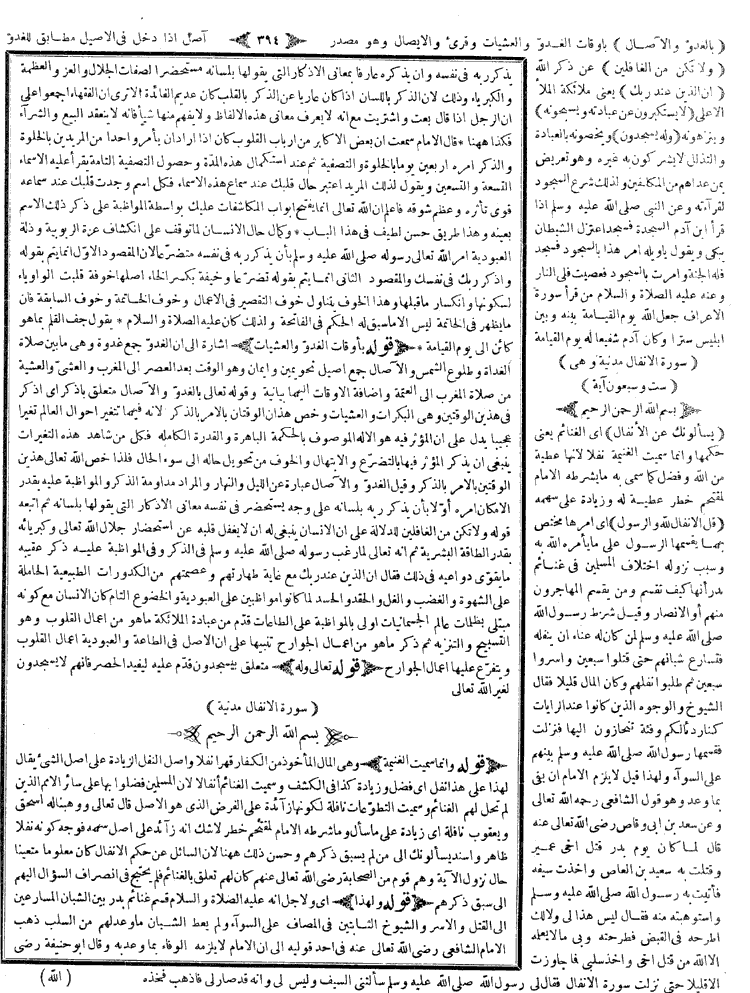 ( بالغدو والآصال ) باوقات الغدو والعشيات وقرئ والايصال وهو مصدر ﴿ ٣٩٤ ﴾ آصل اذا دخل فى الاصيل مطابق للغدو
( ولا تكن من الغافلين ) عن ذكر الله
( ان الذين عند ربك ) يعنى ملائكة الملأ
الاعلى ( لا يستكبرون عن عبادته ويسبحونه )
وينزهونه ( وله يسجدون ) ويخصونه بالعبادة
والتذلل لا يشركون به غيره وهو تعريض
بمن عداهم من المكلفين ولذلك شرع السجود
لقراءته وعن النبى صلى الله عليه وسلم اذا
قرأ ابن آدم السجدة فسجد اعتزل الشيطان
يبكى ويقول يا ويله امر هذا بالسجود فسجد
فله الجنة وامرت بالسجود فعصيت فلى النار
وعنه عليه الصلاة والسلام من قرأ سورة
الاعراف جعل الله يوم القيامة بينه وبين
ابليس سترا وكان آدم شفيعا له يوم القيامة
( سورة الانفال مدنية وهى )
( ست وسبعون آية )
﴿ بسم الله الرحمن الرحيم ﴾
( يسألونك عن الأنفال ) اى الغنائم يعنى
حكمها وانما سميت الغنيمة نفلا لانها عطية
من الله وفضل كما سمى به ما يشرطه الامام
لمقتحم خطر عطية له وزيادة على سهمه
( قل الانفال لله والرسول ) اى امرها مختص
بهما يقسمها الرسول على ما يأمره الله به
وسبب نزوله اختلاف المسلمين فى غنائم
بدر أنها كيف تقسم ومن يقسم المهاجرون
منهم أو الانصار وقيل شرط رسول الله
صلى الله عليه وسلم لمن كان له عناء ان ينفله
فتسارع شبانهم حتى قتلوا سبعين واسروا
سبعين ثم طلبوا نفلهم وكان المال قليلا فقال
الشيوخ والوجوه الذين كانوا عند الرايات
كنا ردءا لكم وفئة تنحازون اليها فنزلت
فقسمها رسول الله صلى الله عليه وسلم بينهم
على السوآء ولهذا قيل لا يلزم الامام ان يفى
بما وعد وهو قول الشافعى رحمه الله تعالى
وعن سعد بن ابى وقاص رضى الله تعالى عنه
قال لما كان يوم بدر قتل اخى عمير
وقتلت به سعيد بن العاص واخذت سيفه
فأتيت به رسول الله صلى الله عليه وسلم
واستوهبته منه فقال ليس هذا لى ولا لك
اطرحه فى القبض فطرحته وبى ما لا يعلمه
الا الله من قتل اخى واخذ سلبى فما جاوزت
الا قليلا حتى نزلت سورة الانفال فقال لى رسول الله صلى الله عليه وسلم سألتنى السيف وليس لى وانه قد صار لى فاذهب فخذه
يذكر ربه فى نفسه وان يذكره عارفا بمعانى الاذكار التى يقولها بلسانه مستحضرا لصفات الجلال والعز والعظمة
والكبرياء وذلك لان الذكر باللسان اذا كان عاريا عن الذكر بالقلب كان عديم الفائدة ألا ترى ان الفقهاء اجمعوا على
ان الرجل اذا قال بعت واشتريت مع انه لا يعرف معانى هذه الالفاظ ولا يفهم منها شيأ فانه لا ينعقد البيع والشرآء
فكذا ههنا * قال الامام سمعت ان بعض الاكابر من ارباب القلوب كان اذا اراد ان يأمر واحدا من المريدين بالخلوة
والذكر امره اربعين يوما بالخلوة والتصفية ثم عند استكمال هذه المدة وحصول التصفية التامة يقرأ عليه الاسماء
التسعة والتسعين ويقول لذلك المريد اعتبر حال قلبك عند سماع هذه الاسماء فكل اسم وجدت قلبك عند سماعه
قوى تأثره وعظم شوقه فاعلم ان الله تعالى انما يفتح ابواب المكاشفات عليك بواسطة المواظبة على ذكر ذلك الاسم
بعينه وهذا طريق حسن لطيف فى هذا الباب * وكمال حال الانسان لما توقف على انكشاف عزة الربوبية وذلة
العبودية امر الله تعالى رسوله صلى الله عليه وسلم بأن يذكر ربه فى نفسه متضرعا لان المقصود الاول انما يتم بقوله
واذكر ربك فى نفسك والمقصود الثانى انما يتم بقوله تضرعا وخيفة بكسر الخاء اصلها خوفة قلبت الواو ياء
لسكونها وانكسار ما قبلها وهذا الخوف يتناول خوف التقصير فى الاعمال وخوف الخاتمة وخوف السابقة فان
ما يظهر فى الخاتمة ليس الا ما سبق له الحكم فى الفاتحة ولذلك كان عليه الصلاة والسلام * يقول جف القلم بما هو
كائن الى يوم القيامة * ﴿ قوله باوقات الغدو والعشيات ﴾ اشارة الى ان الغدو جمع غدوة وهى ما بين صلاة
الغداة وطلوع الشمس والآصال جمع اصيل نحو يمين وايمان وهو الوقت بعد العصر الى المغرب والعشى والعشية
من صلاة المغرب الى العتمة واضافة الاوقات اليهما بيانية وقوله تعالى بالغدو والآصال متعلق باذكر اى اذكر
فى هذين الوقتين وهى البكرات والعشيات وخص هذان الوقتان بالامر بالذكر لانه فيهما تتغير احوال العالم تغيرا
عجيبا يدل على ان المؤثر فيه هو الاله الموصوف بالحكمة الباهرة والقدرة الكاملة فكل من شاهد هذه التغيرات
ينبغى ان يذكر المؤثر فيها بالتضرع والابتهال والخوف من تحويل حاله الى سوء الحال فلذا خص الله تعالى هذين
الوقتين بالامر بالذكر وقيل الغدو والآصال عبارة عن الليل والنهار والمراد مداومة الذكر والمواظبة عليه بقدر
الامكان امره أولا بأن يذكر ربه بلسانه على وجه يستحضر فى نفسه معانى الاذكار التى يقولها بلسانه ثم اتبعه
قوله ولا تكن من الغافلين للدلالة على ان الانسان ينبغى له ان لا يغفل قلبه عن استحضار جلال الله تعالى وكبريائه
بقدر الطاقة البشرية ثم انه تعالى لما رغب رسوله صلى الله عليه وسلم فى الذكر وفى المواظبة عليه ذكر عقيبه
ما يقوى دواعيه فى ذلك فقال ان الذين عند ربك مع غاية طهارتهم وعصمتهم من الكدورات الطبيعية الحاملة
على الشهوة والغضب والغل والحقد والحسد لما كانوا مواظبين على العبودية والخضوع التام كان الانسان مع كونه
مبتلى بظلمات عالم الجسمانيات اولى بالمواظبة على الطاعات قدم من عبادة الملائكة ما هو من اعمال القلوب وهو
التسبيح والتنزيه ثم ذكر ما هو من اعمال الجوارح تنبيها على ان الاصل فى الطاعة والعبودية اعمال القلوب
ويتفرع عليها اعمال الجوارح ﴿ قوله تعالى وله ﴾ متعلق بيسجدون قدم عليه ليفيد الحصر فانهم لا يسجدون
لغير الله تعالى
( سورة الانفال مدنية )
﴿ بسم الله الرحمن الرحيم ﴾
﴿ قوله وانما سميت الغنيمة ﴾ وهى المال المأخوذ من الكفار قهرا نفلا واصل النفل الزيادة على اصل الشئ يقال
لهذا على هذا نفل اى فضل وزيادة كذا فى الكشف وسميت الغنائم أنفالا لان المسلمين فضلوا بها على سائر الامم الذين
لم تحل لهم الغنائم وسميت التطوعات نافلة لكونها زآئدة على الفرض الذى هو الاصل قال تعالى ووهبنا له اسحق
ويعقوب نافلة اى زيادة على ما سأل وما شرطه الامام لمقتحم خطر لا شك انه زآئد على اصل سهمه فوجه كونه نفلا
ظاهر واسند يسألونك الى من لم يسبق ذكرهم وحسن ذلك ههنا لان السائل عن حكم الانفال كان معلوما متعينا
حال نزول الآية وهم قوم من الصحابة رضى الله تعالى عنهم كان لهم تعلق بالغنائم فلم يحتج فى انصراف السؤال اليهم
الى سبق ذكرهم ﴿ قوله ولهذا ﴾ اى ولاجل انه عليه الصلاة والسلام قسم غنائم بدر بين الشبان المسارعين
الى القتل والاسر والشيوخ الثابتين فى المصاف على السوآء ولم يعط الشبان ما وعد لهم من السلب ذهب
الامام الشافعى رضى الله تعالى عنه فى احد قوليه الى ان الامام لا يلزمه الوفاء بما وعد به وقال ابو حنيفة رضى
( الله )